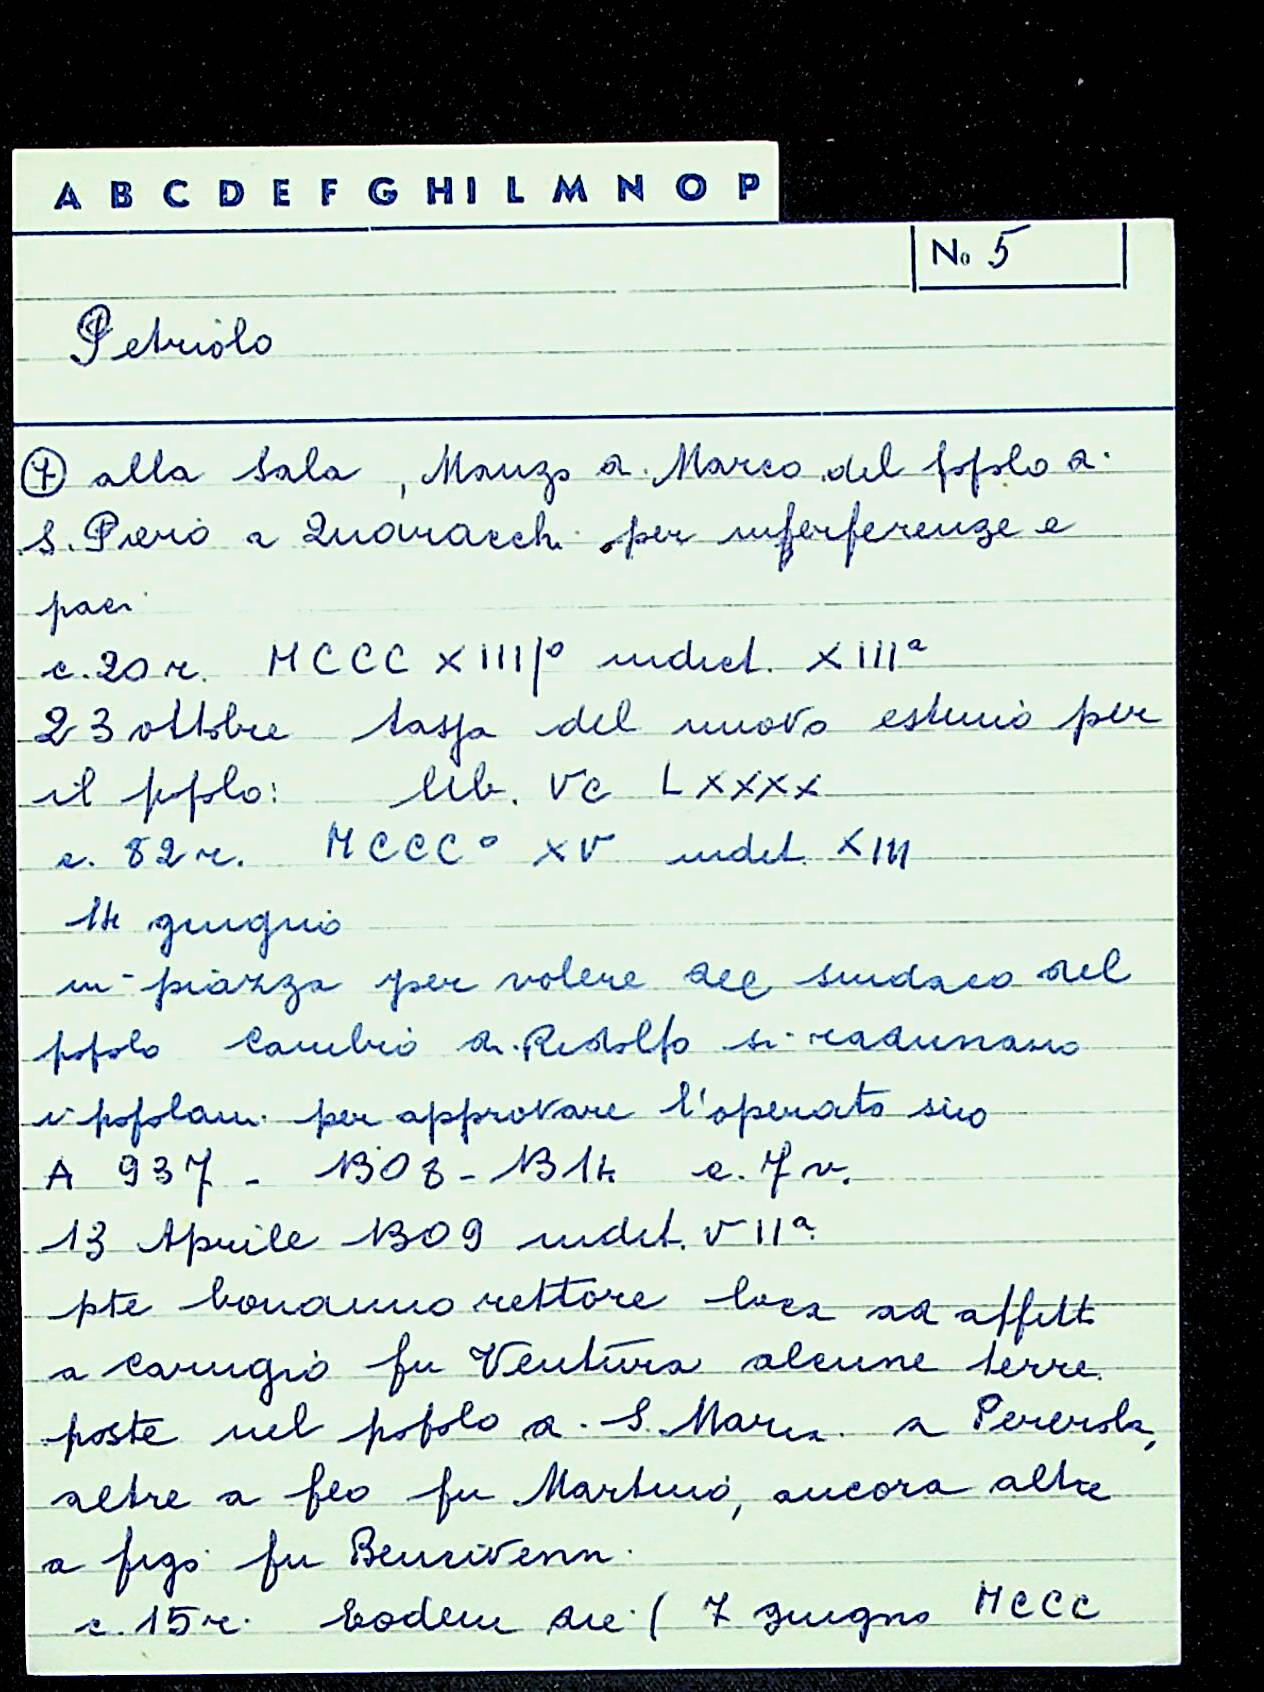 A B C D E F G H I L M N O P
No 5
Petriolo
7 alla Sala, Manzo di Marco del popolo di
S. Piero a Quaracchi per interferenze e
paci
c. 20 r. MCCC XIIIIº indict. XIIIª
23 ottobre tassa del nuovo estimo per
il popolo: lib. VC LXXXX
c. 82 r. MCCCº XV indict. XIII
14 giugno
in piazza per volere del sindaco del
popolo Cambio di Ridolfo si radunano
i popolani per approvare l'operato suo
A 937 - 1308-1314 c. 7 v.
13 Aprile 1309 indict. VIIª
pte bonanno rettore loca ad affitt
a Carugio fu Ventura alcune terre
poste nel popolo di S. Maria a Peretola,
altre a feo fu Martino, ancora altre
a figo fu Bencivenni
c. 15 r. Eodem die ( 7 giugno MCCC